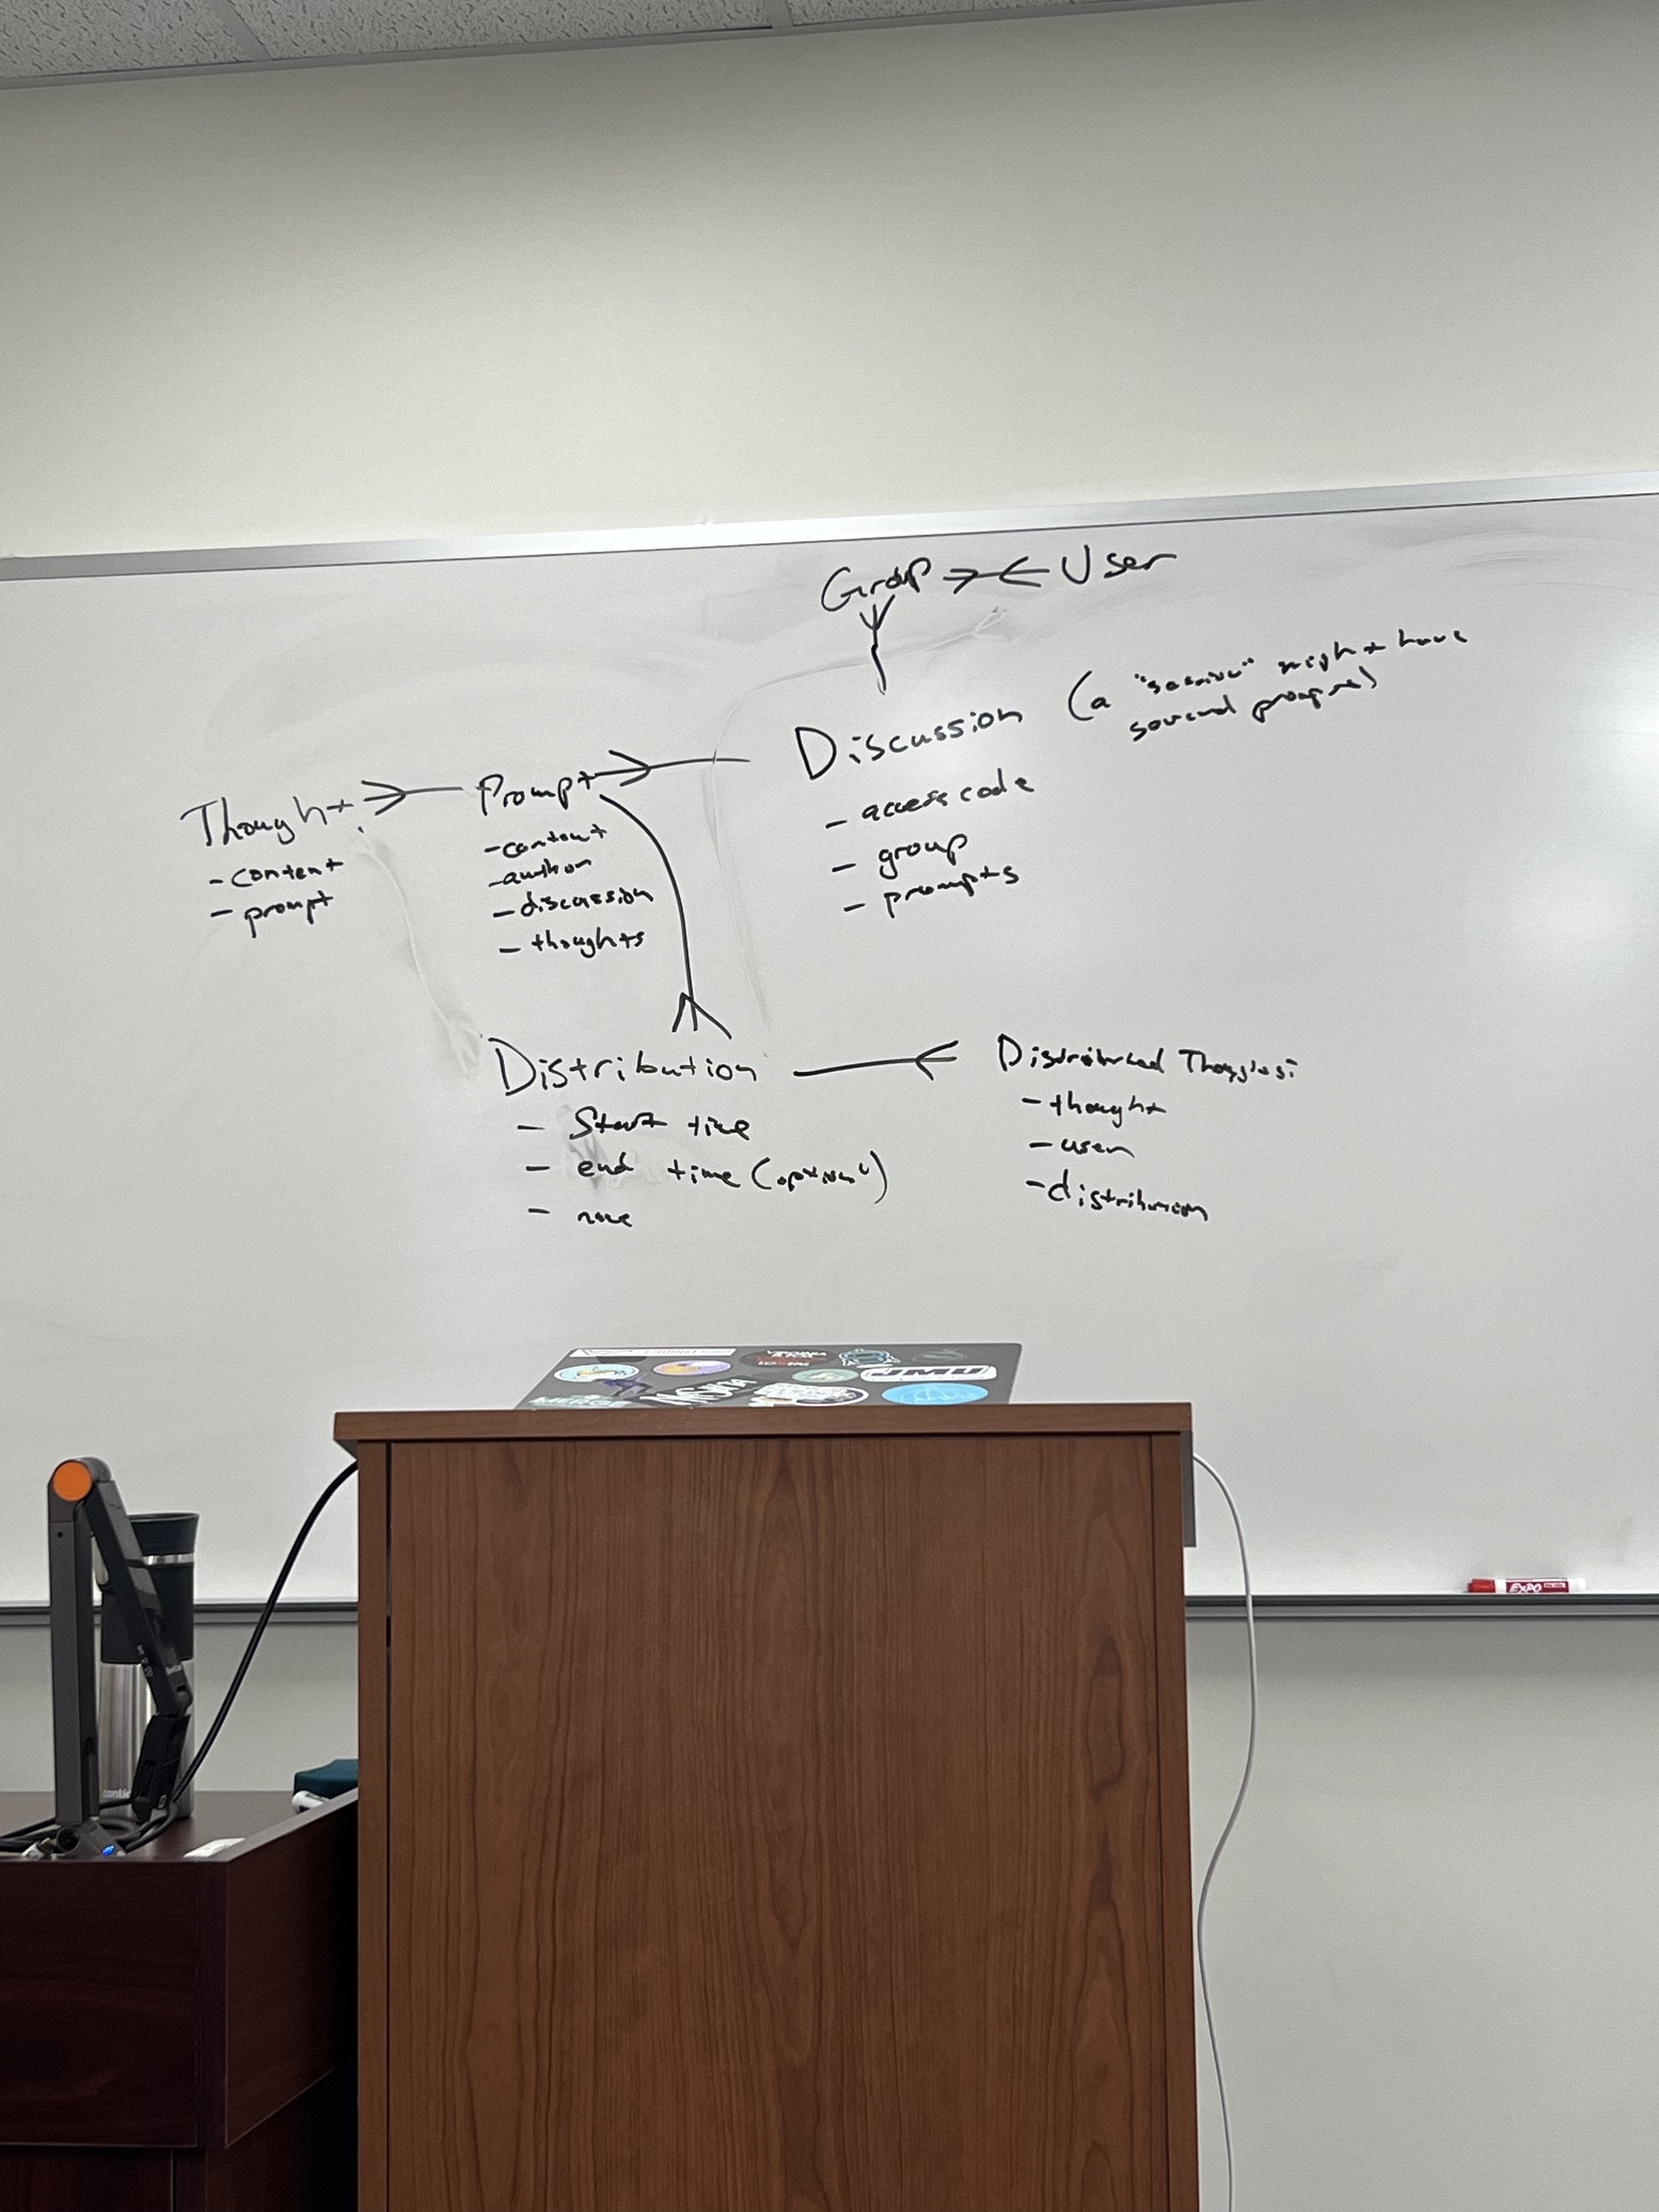 Group User
Discussion (a "session" might have
several prompts)
- access code
- group
- prompts
Thought
- content
- prompt
Prompt
- content
- author
- discussion
- thoughts
Distribution
- Start time
- end time (optional)
-
Distributed Thoughts:
- thought
- user
- distribution
JMU
EXPO